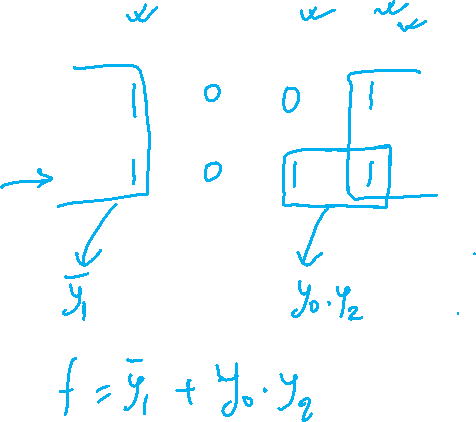 1 0 0 1
1 0 1 1
y̅₁ y₀.y₂
f = y̅₁ + y₀.y₂